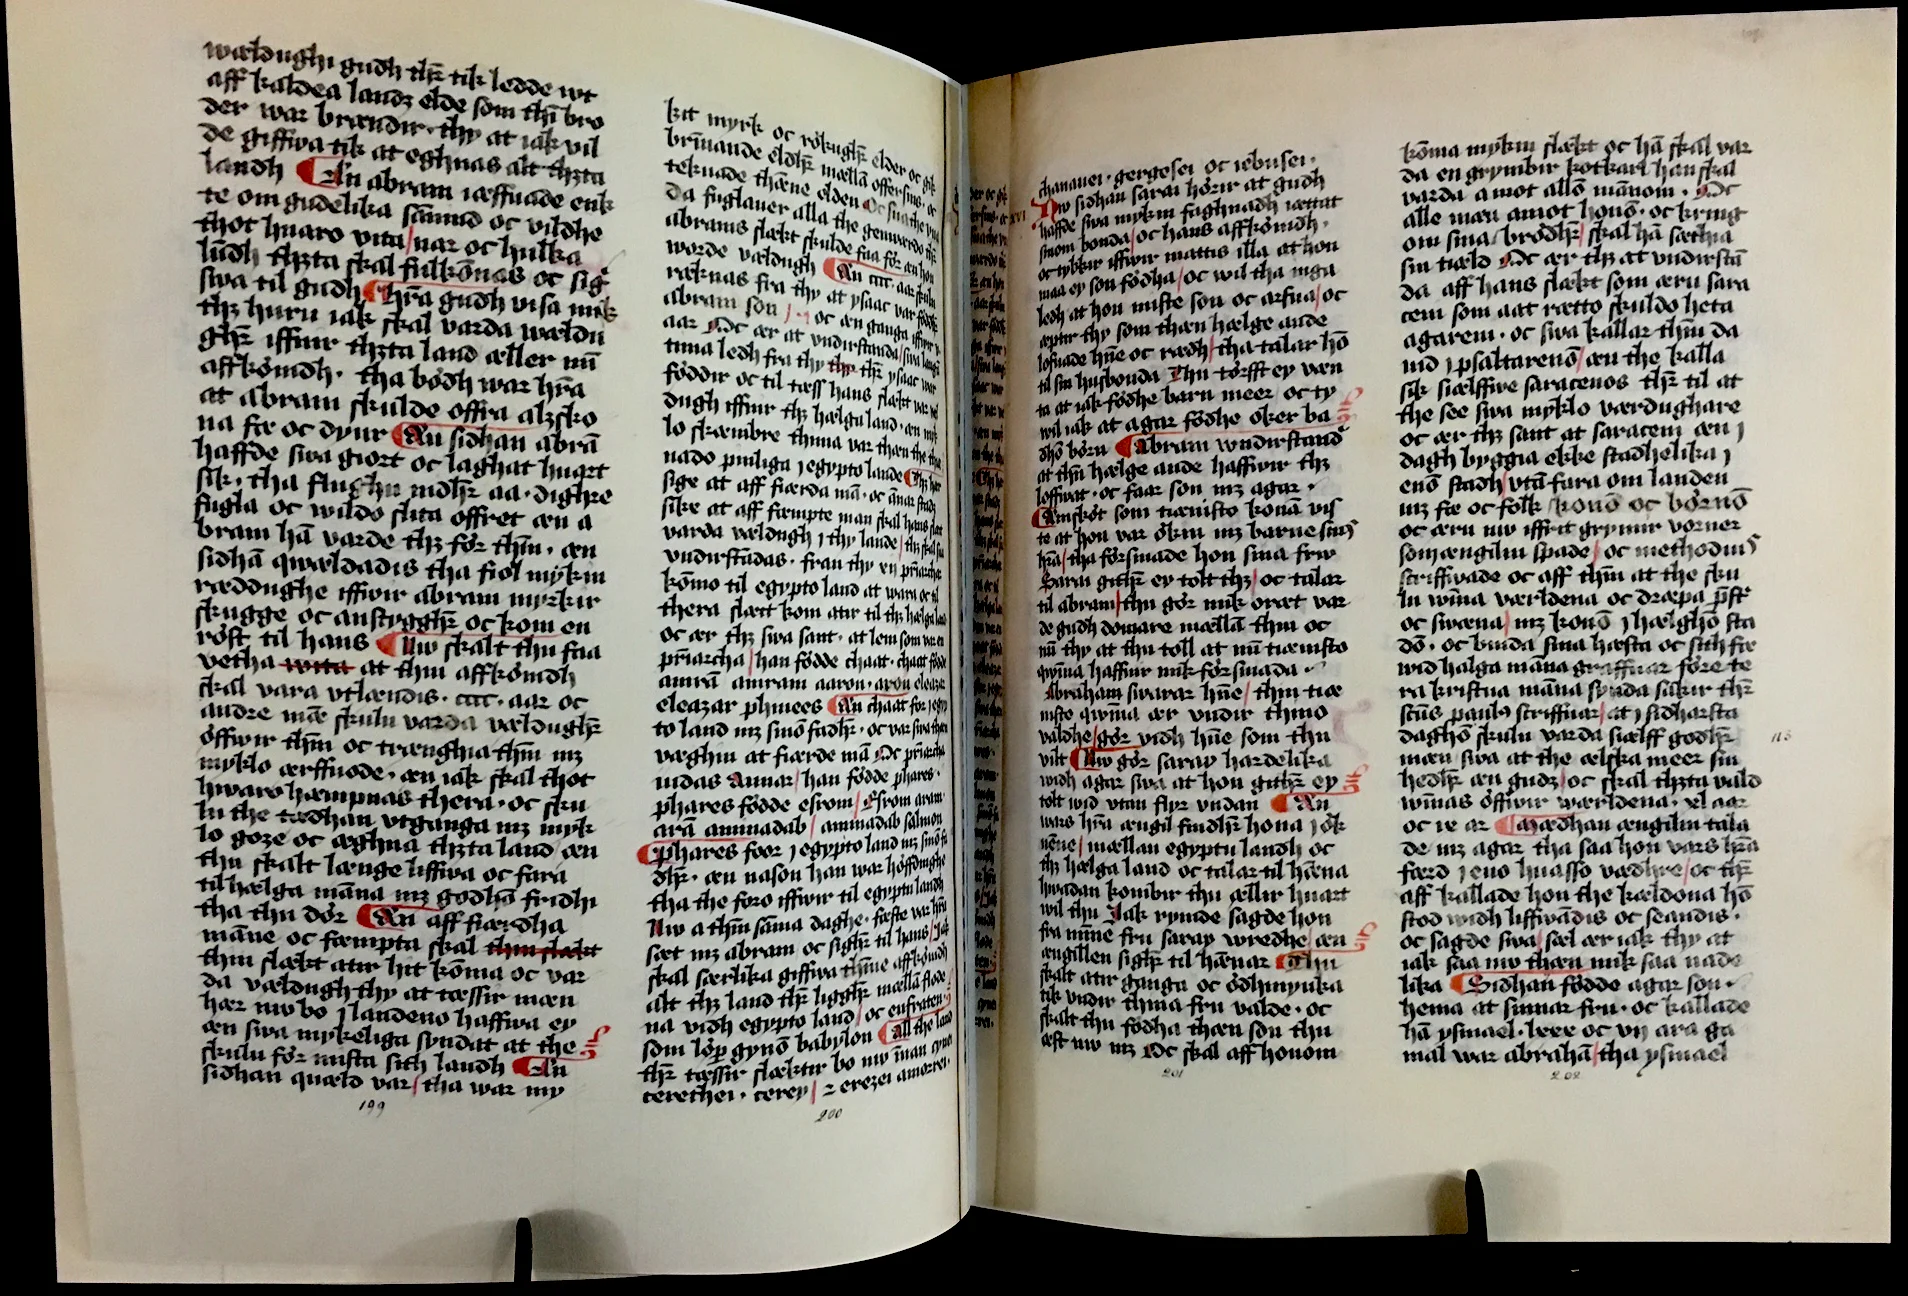 wældughi gudh thr̄ tik ledde wt
aff kaldea landz elde som thī bro
der war brændir · thy at iak vil
de giffwa tik at eghnas alt thz̄ta
landh Æn abram iæffuade enk
te om gudelika sānnīd oc vildhe
thot huaro vita / nar oc hulka
lūdh thz̄ta skal fulkōnas oc siḡ
swa til gudh hr̄a gudh visa mik
thz huru iak skal varda wældu
ghr̄ iffuir thz̄ta land æller mī
affkōmdh · tha bødh war hr̄a
at abram skulde offra alzsko
na fæ oc dyur Æn sidhan abrā
haffde swa giort oc laghat huart
sik · tha flughu nidhr̄ aa · dighre
fugla oc wildo slita offret æn a
bram hā varde thz før thīn · æn
sidhā qwældadis tha fiol mykin
ræddughe iffwir abram myrkir
skugge oc anstygghr̄ oc kom en
røst til hans Nw skalt thu faa
vetha wita at thin affkōmdh
skal vara vtlændis · cccc · aar oc
andre mæ skulu varda vældughr̄
øffwir thīn oc trænghia thīn mz
myklo ærffuode · æn iak skal thot
hwaro hæmpnas thera · oc sku
lu the tædhan vtganga mz myk
lo goze oc æghna thz̄ta land / æn
thu skalt længe liffwa oc fara
til hælga māna mz godhā fridhi
tha thu dør Æn aff fiærdha
māne oc fæmpta skal thin slækt
thin slækt atir hit kōma oc var
da vældugh thy at tæssir mæn
hær nw bo / landeno haffwa ey
æn swa mykeliga syndat at the
skulu før mista sith landh Æn
sidhan quæld var / tha war my
199
kit myrk oc røkughr̄ elder oc gik
brīnande eldhr̄ mællā offersins · oc
teknade thæne elden Oc snathe vnd
da fuglauer alla the genwerdo thz
abrams slækt skulde faa før æn hon
worde vældugh Æn cccc · aar skulu
ræknas fra thy at ysaac var fødd
abram son / oc æn ganga iffwir v
aar Oc ær at vndirstanda / swa langa
tima ledh fra thy thr̄ ysaac war
føddir oc til tæss hans slækt var væl
dugh iffuir thz hælga land · æn myk
lo skæmbre thima var thæn the tha
nado piniliga j egypto lande Thz hær
sige at aff fiærda mā · oc ānar stadz
sike at aff fæmpte man skal hans slækt
varda vældugh j thy lande / thz skal sua
vndirstādas · fran thy xii priarcha
kōmo til egypto land at wara oc til
thera slæct kom atir til thz hælga land
oc ær thz swa sant · at lem som var en
prīarcha / han fødde chaat · chaat fødde
amrā amram aaron · aron eleazar
eleazar phinees Æn chaat for j egyp
to land mz sinō fadhr̄ · oc var swa then
væghin at fiærde mā Oc priarcha
iudas Annar / han fødde phares ·
phares fødde esrom / Esrom aram
arā aminadab / aminadab salmon
phares foor j egypto land mz sinō fa
dhr̄ · æn nason han war høffdinghe
tha the foro iffwir til egyptu landh
Nw a thīn sāma daghe · fæste var hr̄a
sæt mz abram oc sighr̄ til hans / Jak
skal særlika giffwa thīne affkōmdh
alt thz land thr̄ ligghr̄ mællā flode
na vidh egypto land / oc eufraten
som løp̄ gynō babylon all the land
thr̄ tæssir slæktir bo nw innan cynei
cerethei · cerey / z erezei amorrei ·
200
chananei · gergesei oc iebusei ·
xvi Nw sidhan sarai hørir at gudh
haffde swa mykin faghnadh iættat
sinom bonda / oc hans affkōmdh ·
oc tykkir iffwir mattis illa at hon
maa ey son fødha / oc wil tha inga
ledh at hon miste son oc arfua / oc
æptir thy som thæn hælge ande
lofuade hn̄e oc rædh / tha talar hō
til sin husbonda Thu tørfft ey væn
ta at iak føдhe barn meer oc ty
wil iak at agar fødhe oker ba
dhō børn Abram wndirstand
at thīn hælge ande haffwir thz
loffwat · oc faar son mz agar ·
Æmskøt som tiænisto konā vis
te at hon var økin mz barne sins
hr̄a / tha førsmade hon sina frw
Sarai gither ey tolt thz / oc talar
til abram / thu gør mik oræt var
de gudh domare mællā thin oc
mī thy at thu toll at mī tiænisto
qwīna haffuir mik førsmada ·
Abraham swarar hn̄e / thin tiæ
nisto qwīna ær vndir thino
valdhe / gør vidh hn̄e som thu
vilt Nw gør saray hardelika
widh agar swa at hon githr̄ ey
tolt wid vtan flyr vndan Æn
wars hr̄a ængil findhr̄ hona j øk
nēne / mællan egyptu landh oc
thz hælga land oc talar til hæna
hwadan kombir thu æller huart
wil thu Jak rymde sagde hon
fra mine fru saray wredhe / æn
ængillen sighr̄ til hænar Thu
skalt atir ganga oc ødhmyuka
tik vndir thina fru valde · oc
skalt thu fødha thæn son thu
æst nw mz Oc skal aff honom
201
kōma mykin slækt oc hā skal var
da en grymbir kotkarl han skal
varda amot allō mānom · Oc
alle mæn amot honō · oc kring
om sina brødhr̄ / skal hā sæthia
sin tiæld Oc ær thz at vndirstā
da aff hans slækt som æru sara
ceni som aat rætto skuldo heta
agareni · oc swa kallar thīn da
uid j psaltarenō / æn the kalla
sik siælffwe saracenos thr̄ til at
the see swa myklo værdughare
oc ær thz sant at saraceni æn j
dagh byggia ekke stadhelika j
enō stadh / vtā fara om landen
mz fæ oc folk konō oc børnō
oc æru nw iffrit grymir vorner
som ængilin spade / oc methodius
scriffwade oc aff thīn at the sku
lu wīna værldena oc dræpa p̄ste
oc swæna / mz konō j hælghō sta
dō · oc binda sina hæsta oc sith fæ
wid halga māna graffuar føre te
ra kristna māna synda sakir thr̄
scūs paulus scriffuar / at j sidharsta
daghō skulu varda siælff godhr̄
mæn / swa at the ælska meer sin
hedhr̄ æn gudz / oc skal thz̄ta vald
wīnas øffwir wærldena · xl aar
oc ix ar Mædhan ængilin tala
de mz agar tha saa hon vars hr̄a
færd j eno huasso vædhre / oc thr̄
aff kallade hon the kældona hō
stod widh liffwadis oc seandis ·
oc sagde swa / sæl ær iak thy at
iak saa nw thæn mik saa nade
lika Sidhan fødde agar son ·
hema at sinnar fru · oc kallade
hā ysmael · lxxx oc vij ara ga
mal war abrahā / tha ysmael
202
113